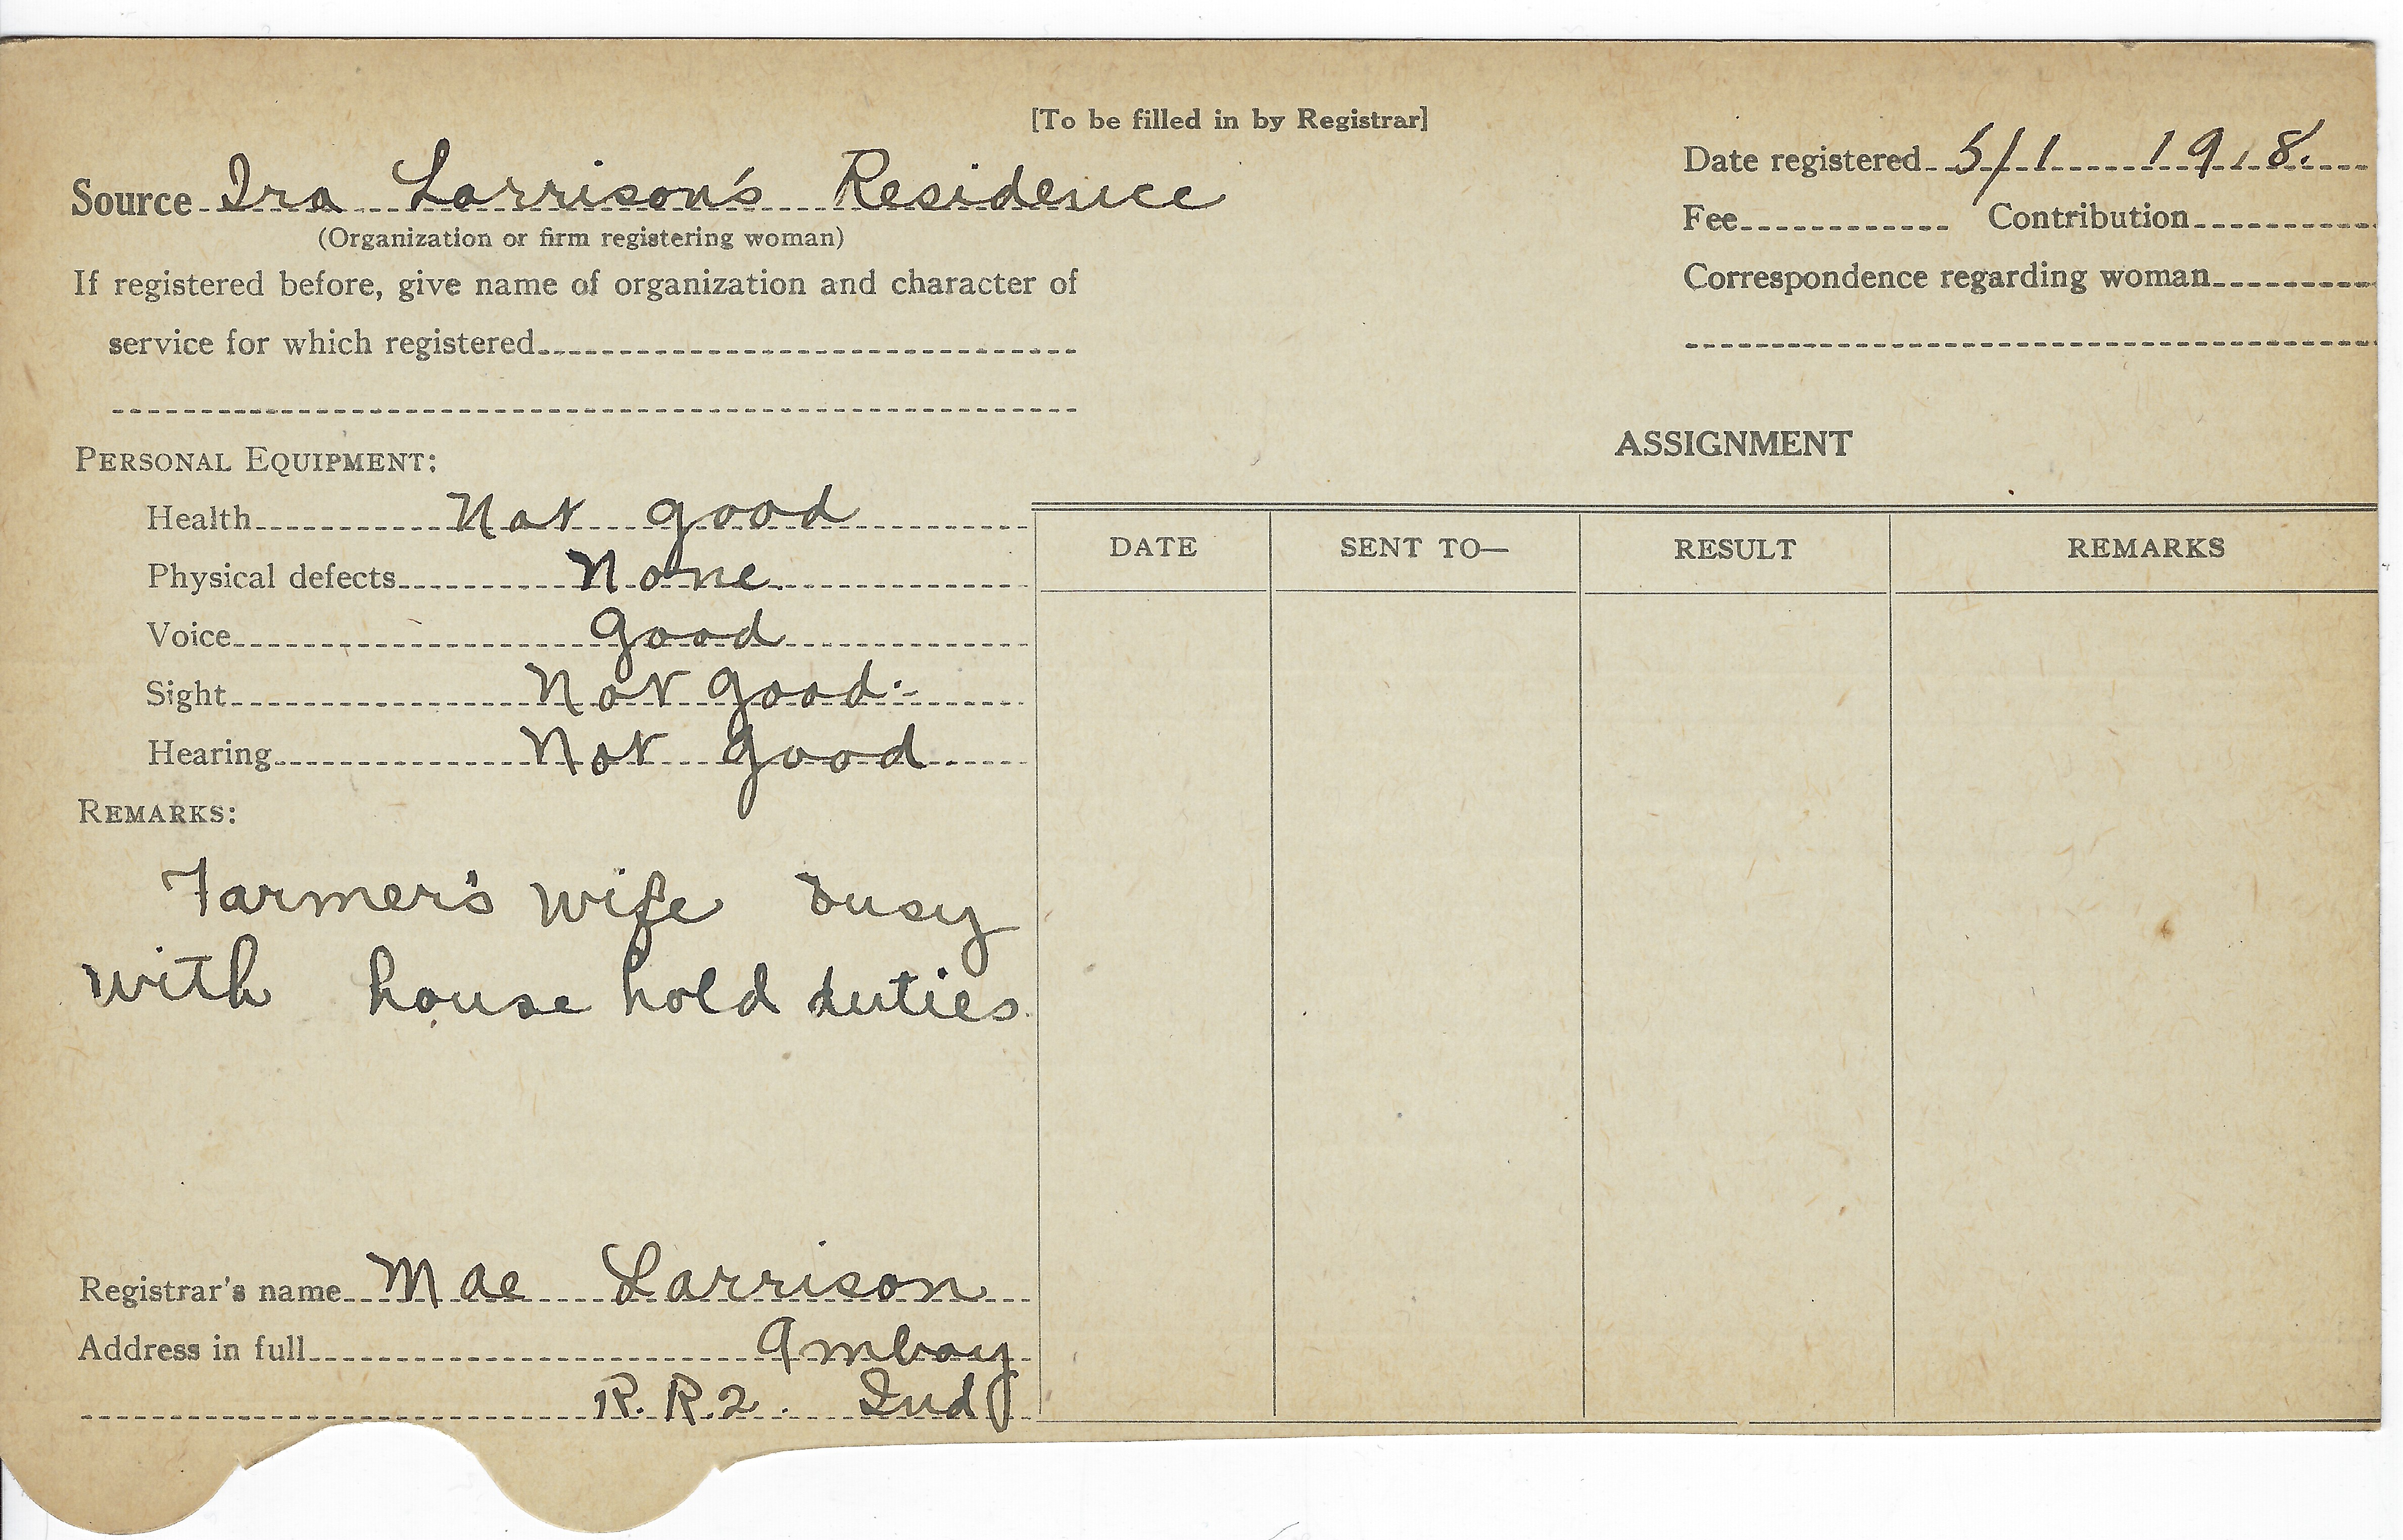 [To be filled in by Registrar]
Source Ira Larrison's Residence
(Organization or firm registering woman)
If registered before, give name of organization and character of
service for which registered
Date registered 5/1 1918.
Fee Contribution
Correspondence regarding woman
PERSONAL EQUIPMENT:
Health Not good
Physical defects None
Voice Good
Sight Not good
Hearing Not good
REMARKS:
Farmer's wife busy
with house hold duties
Registrar's name Mae Larrison
Address in full Amboy
R.R.2. Ind
ASSIGNMENT
DATE SENT TO— RESULT REMARKS